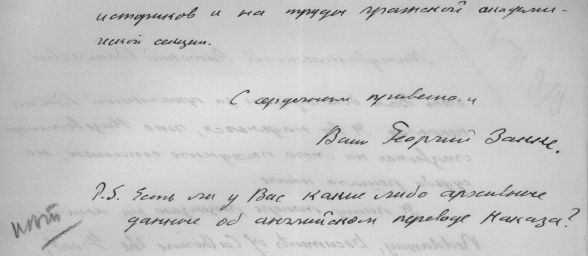 историков и на труды пражской академи-
ческой секции.
С сердечным приветом
Ваш Георгий Занне.
P.S. Есть ли у Вас какие либо архивные
данные об английском переводе Наказа?